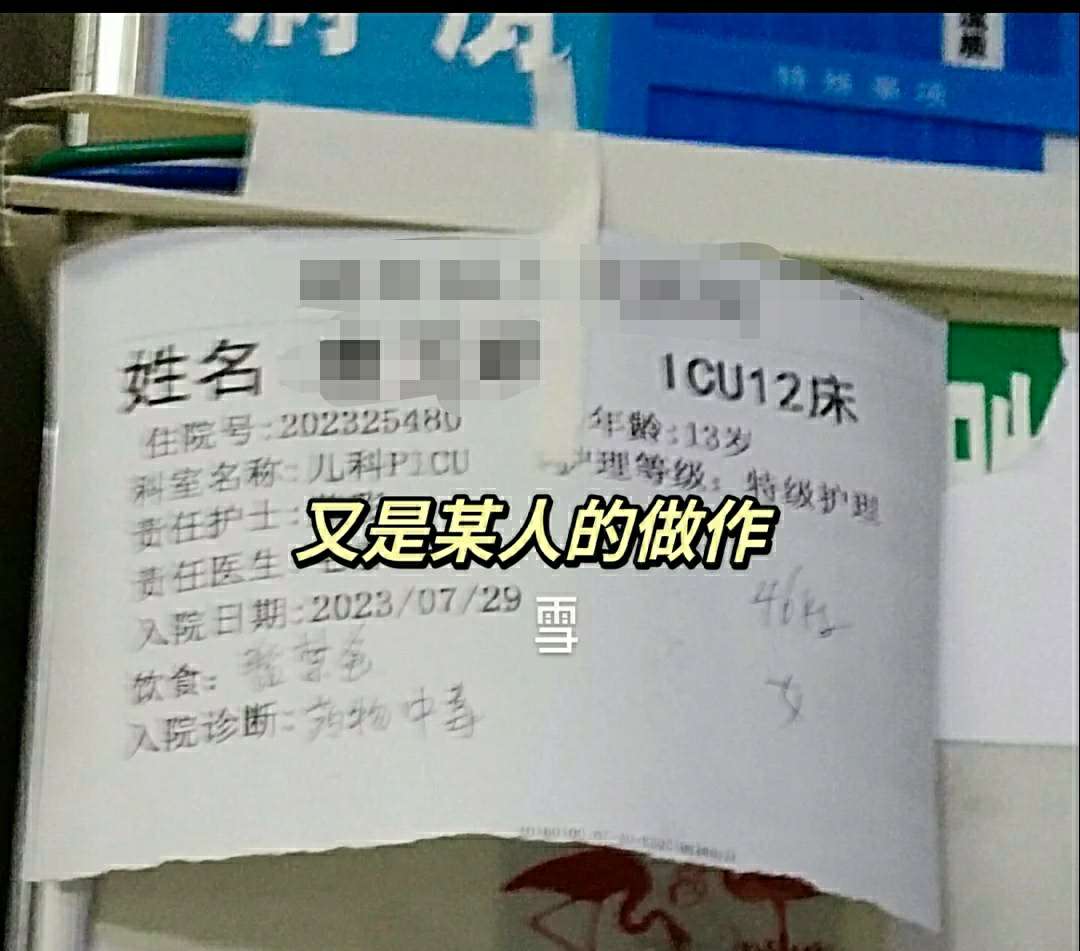 特殊事项
姓名
ICU12床
住院号:202325480
年龄:13岁
科室名称:儿科PICU
护理等级:特级护理
责任护士:
又是某人的做作
责任医生
入院日期:2023/07/29
雪
46kg
饮食:禁食
女
入院诊断:药物中毒